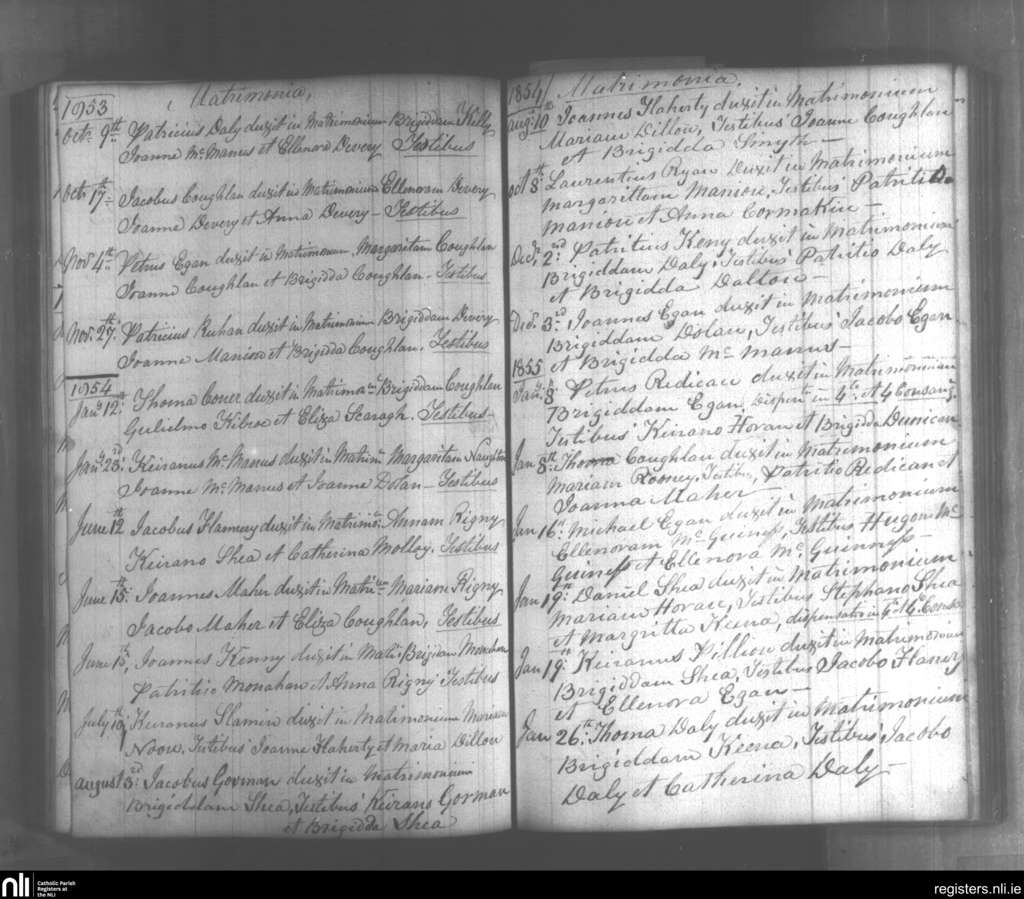 1953
Matrimonia,
Octr. 9th Patricius Daly duxit in Matrimonium Brigiddam Kelly
Joanne Mc. Manus et Ellenora Devery Testibus
Octr. 17th Jacobus Coughlan duxit in Matrimonium Ellenoram Devery
Joanne Devery et Anna Devery - Testibus
Novr. 4th Petrus Egan duxit in Matrimonium Margaritam Coughlan
Joanne Coughlan et Brigidda Coughlan - Testibus
Novr. 27th Patricius Ruhan duxit in Matrimonium Brigiddam Devery
Joanne Manion et Brigidda Coughlan. Testibus
1954
Jany. 12th Thoma duxit in Matrimm. Brigiddam Coughlan
Gulielmo et Eliza Testibus -
Jany. 23rd Keiranus Mc. Manus duxit in Matrim Margaritam Naughton
Joanne Mc. Manus et Joanne Dolan - Testibus
June 12th Jacobus Flannery duxit in Matrimo. Annam Rigny
Keirano Shea et Catherina Molloy. Testibus
June 15th Joannes Maher duxit in Matrium Mariam Rigny
Jacobo Maher et Eliza Coughlan, Testibus
June 15, Joannes Kenny duxit in Matri. Brigidam Monahan
Patritio Monahan et Anna Rigny Testibus
July 19th Keiranus Slamin duxit in Matimonium Mariam
Noon, Testibus Joanne Flaherty et Maria Dillon
August 3rd Jacobus Gorman duxit in Matrimonium
Brigiddam Shea, Testibus Keirano Gorman
et Brigidda Shea
1854 Matrimonia
Aug. 10th Joannes Flaherty duxit in Matrimonium
Mariam Dillon, Testibus Joanne Coughlan
et Brigidda Smyth -
Oct 8th Laurentius Ryan Duxit in Matrimonium
Margarittam Manion, Testibus Patritio
Manion et Anna Cormakin -
Decr. 2nd Patritius Keny duxit in Matrimonium
Brigiddam Daly, Testibus Patritio Daly
et Brigidda Dalton -
Decr. 3rd Joannes Egan duxit in Matrimonium
Brigiddam Dolan, Testibus Jacobo Egan
et Brigidda Mc Manus -
1855
Jany. 8 Petrus Redican duxit in Matrimonium
Brigiddam Egan, Dispens. in 4to. et 4 Consang.
Testibus Keirano Horan et Brigidda Dunican
Jan 8th Thoma Coughlan duxit in Matrimonium
Mariam Rooney. Testibus, Patritio Redican et
Joanna Maher -
Jan 16th Michael Egan duxit in Matrimonium
Ellenoram Mc Guiness, Testibus Hugone Mc
Guiness et Ellenora Mc. Guinness -
Jan 19th Daniel Shea duxit in Matrimonium
Mariam Horan, Testibus Stephano Shea
et Margritta Keena, dispensatis in 4to et 4to Consa
Jan 19th Keiranus Killion duxit in Matrimonium
Brigiddam Shea, Testibus Jacobo Flanery
et Ellenora Egan -
Jan 26th Thoma Daly duxit in Matrimonium
Brigiddam Keena, Testibus Jacobo
Daly et Catherina Daly -
nli
Catholic Parish
Registers at
the NLI
registers.nli.ie